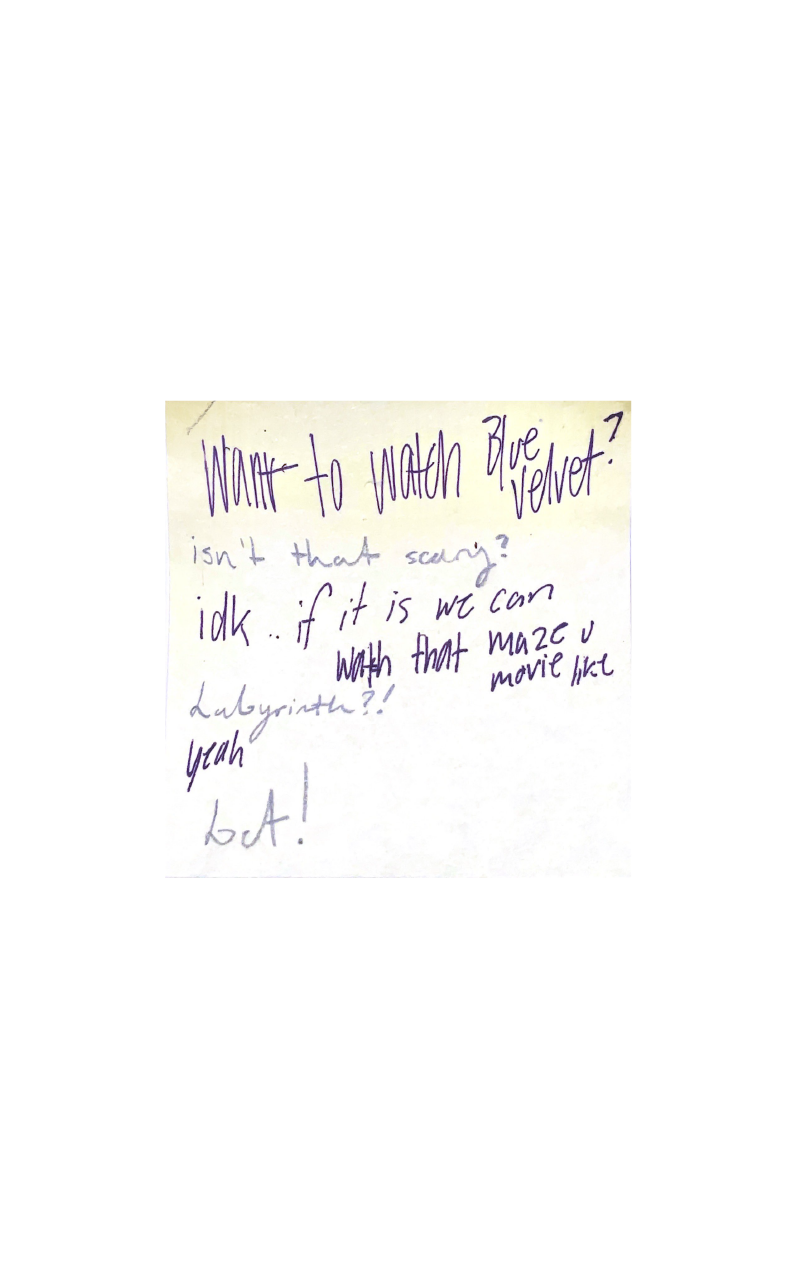 Want to watch Blue
velvet?
isn't that scary?
idk.. if it is we can
watch that maze u
movie like
Labyrinth?!
yeah
bet!